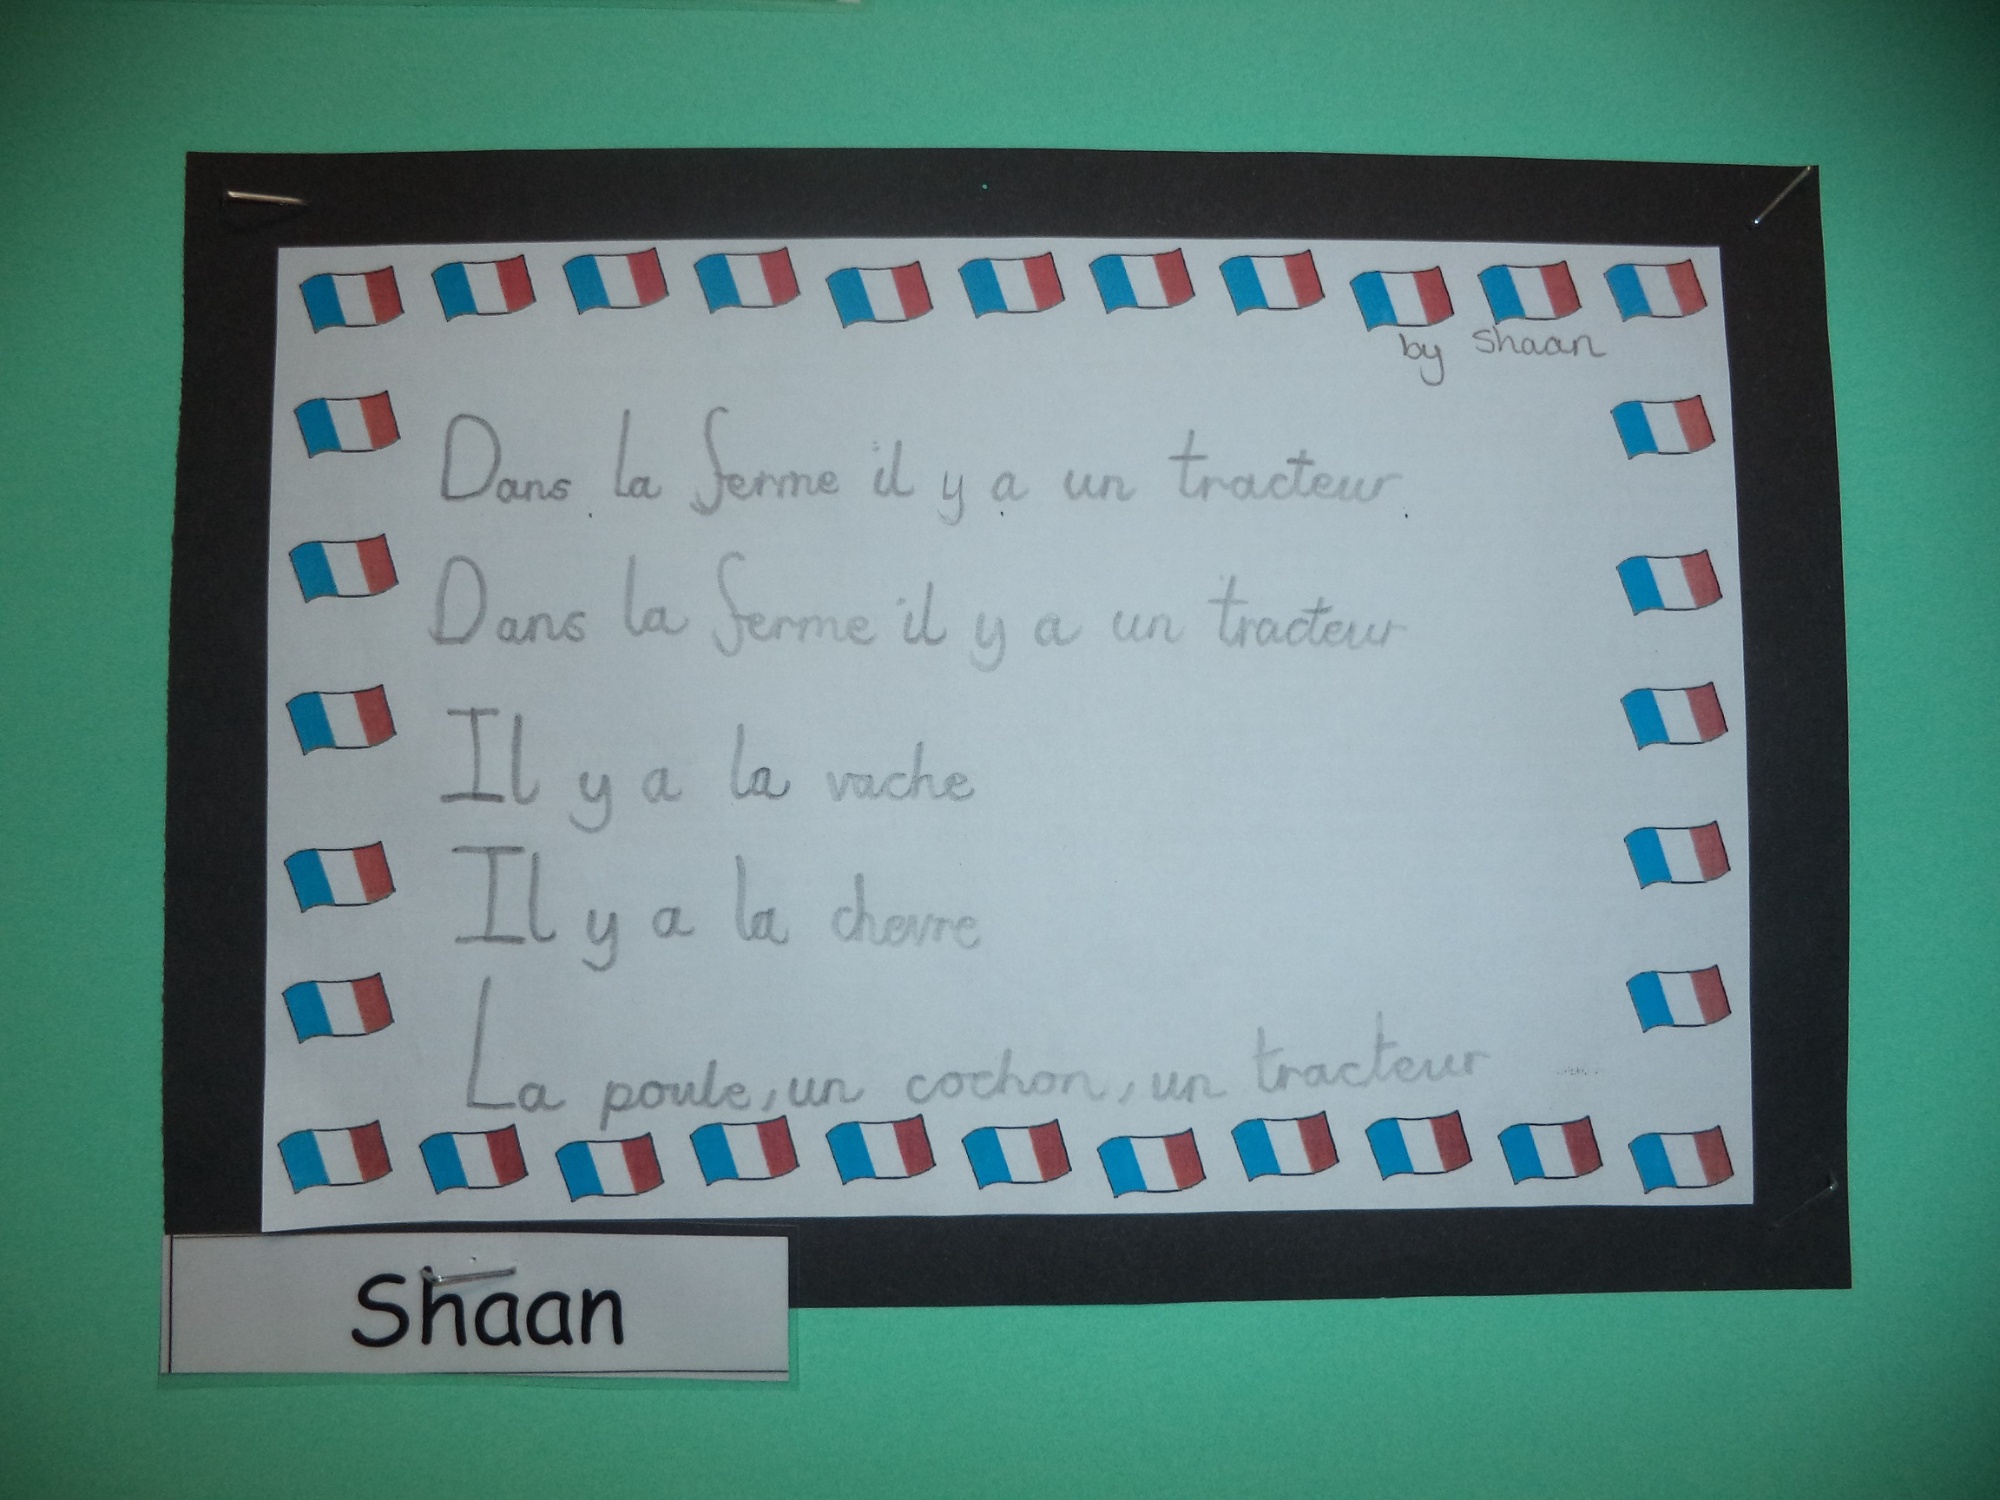 by Shaan
Dans la ferme il y a un tracteur
Dans la ferme il y a un tracteur
Il y a la vache
Il y a la chevre
La poule, un cochon, un tracteur
Shaan